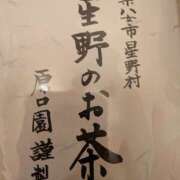 県八女市星野村
星野のお茶
原口園謹製